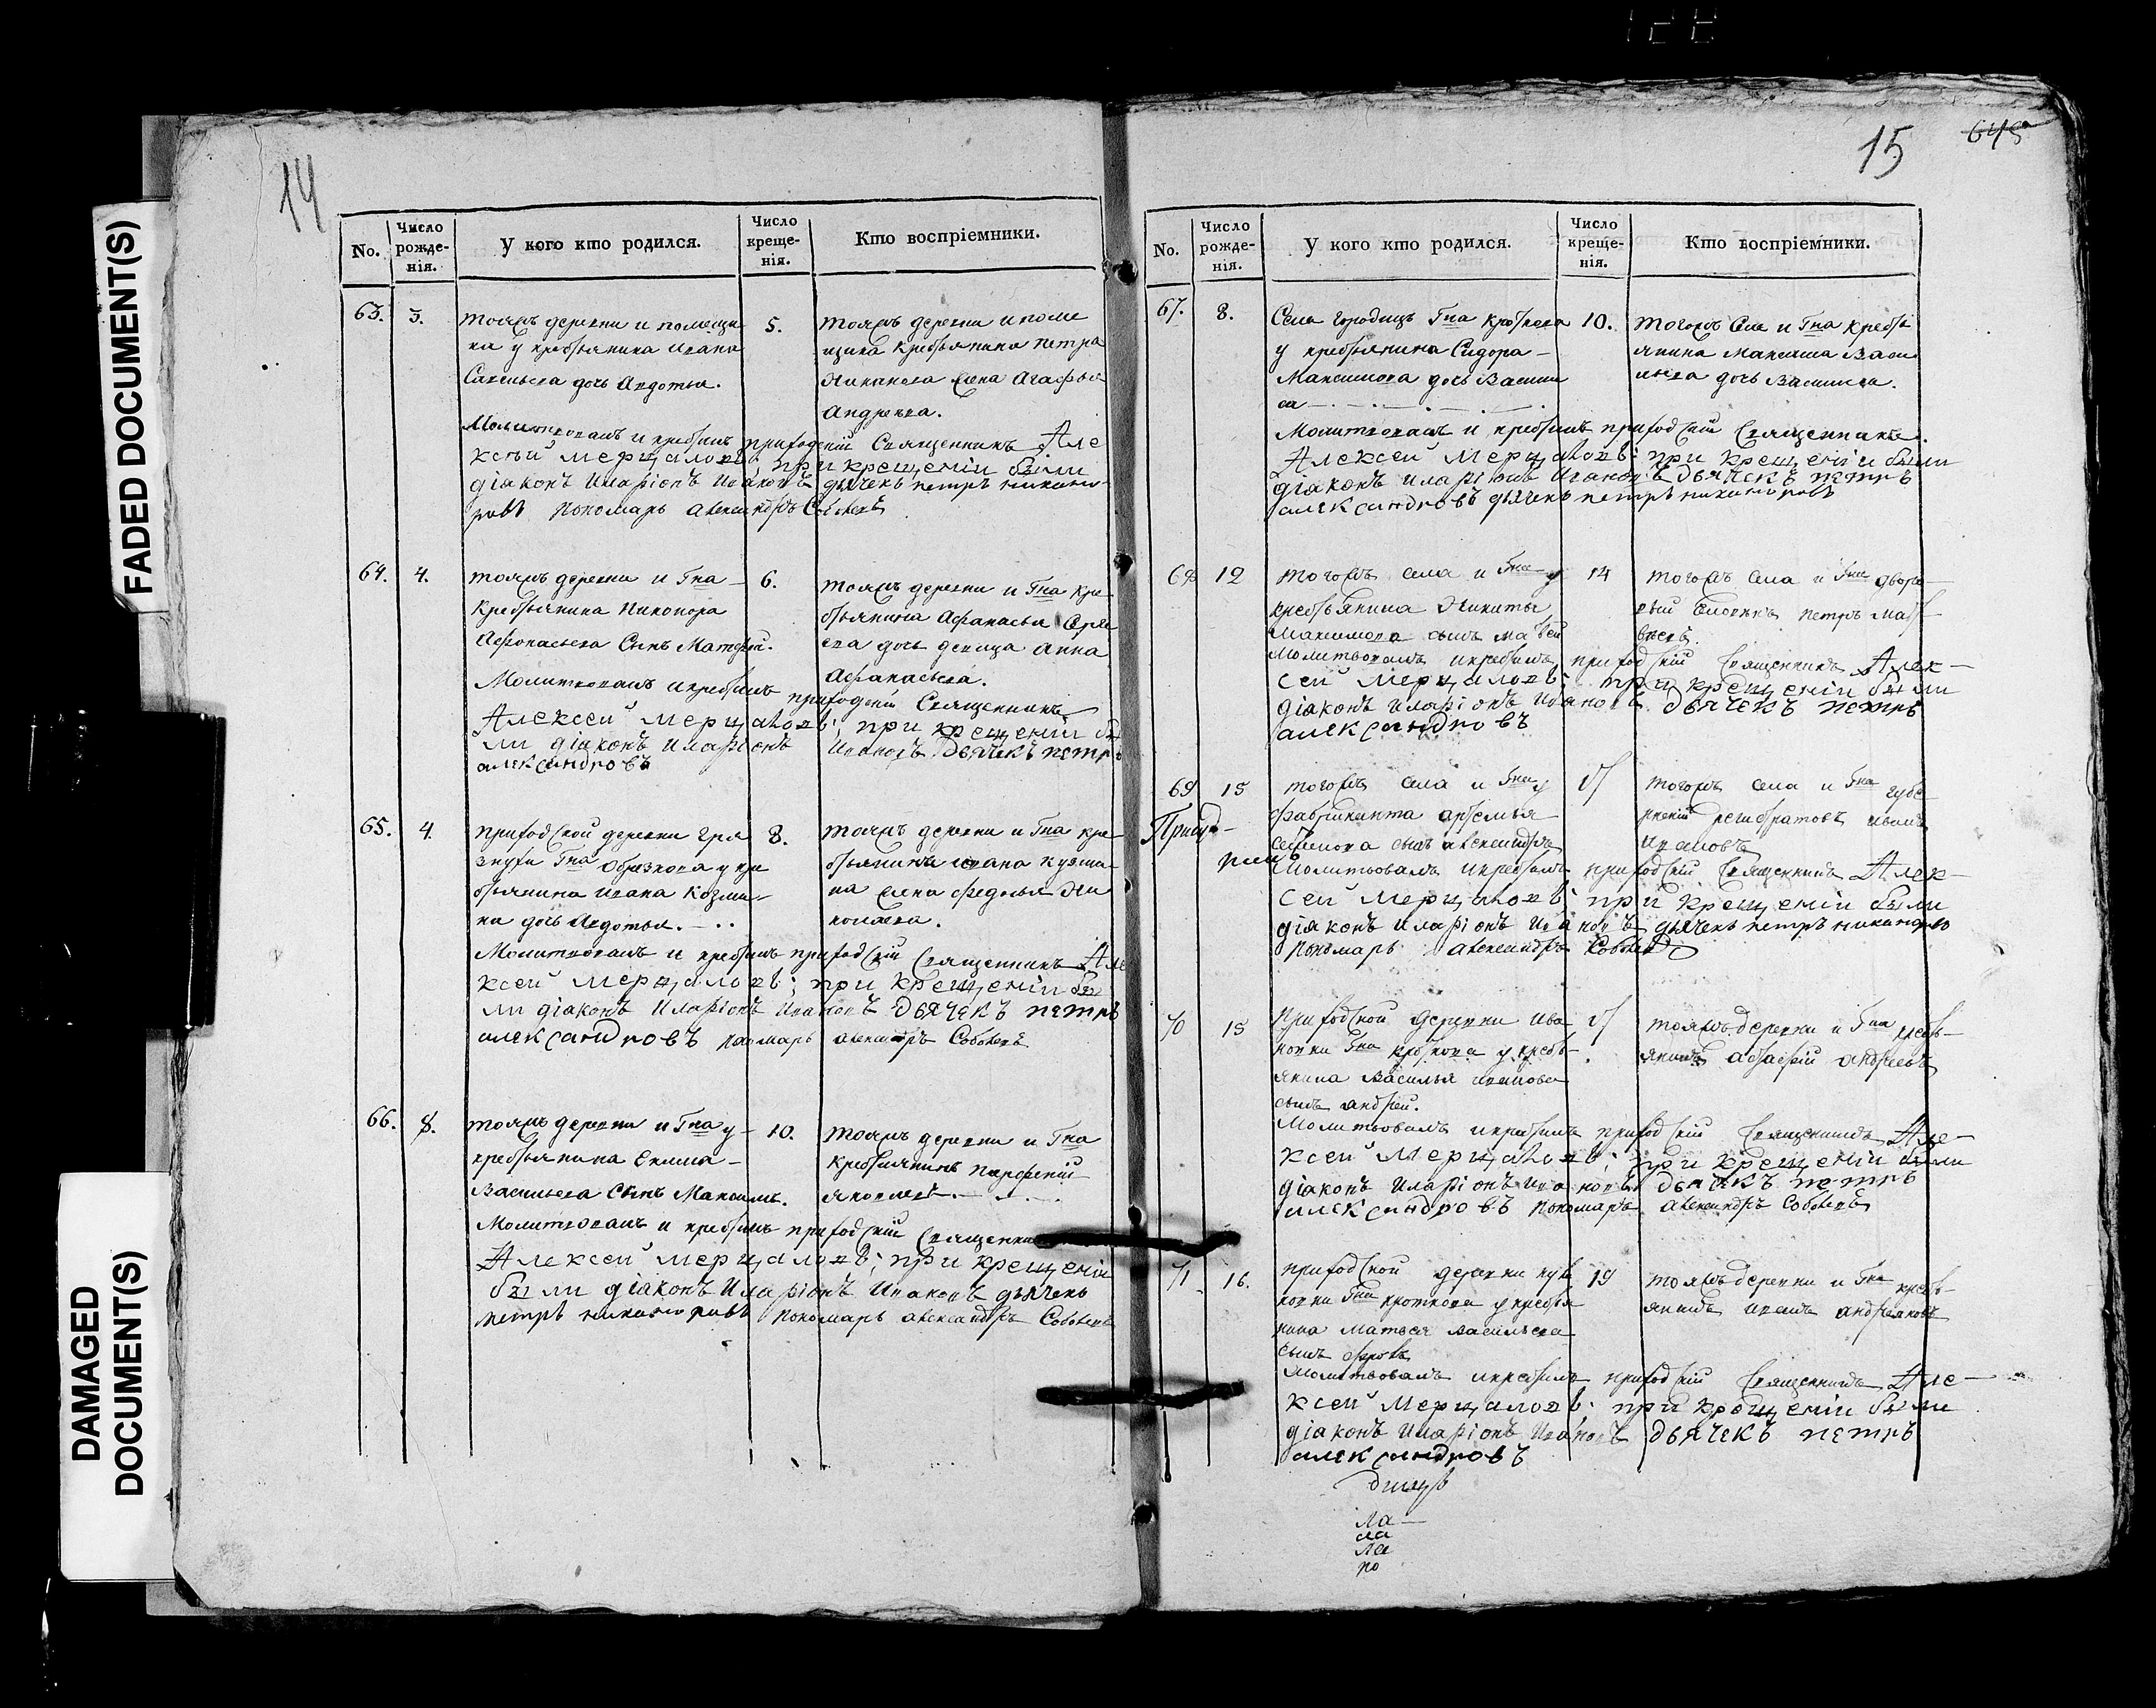 14
No.
Число рожде-нія.
У кого кто родился.
Число креще-нія.
Кто воспріемники.
63.
3.
тояжъ деревни и помещи
ка у крестьянина Ивана
Савельева дочь Авдотья.
5.
тояжъ деревни и поме
щика крестьянина петра
жена Агафья
Андреева.
Молитвовалъ и крестилъ приходскій Священникъ Але
ксѣй Мерцаловъ; при крещеніи были
діаконъ Иларіонъ Ивановъ дьячекъ петръ никано
ровъ пономарь александръ Соболевъ
64.
4.
тояжъ деревни и Гна
крестьянина Никонора
Афонасьева Сынъ Матфей.
6.
тояжъ деревни и Гна кре
стьянина Афанасья
ева дочь девица анна
Афанасьева.
Молитвовалъ и крестилъ приходскій Священникъ
Алексей Мерцаловъ; при крещеніи бы
ли діаконъ Иларіонъ Ивановъ Дьячекъ петръ
александровъ
65.
4.
приходской деревни Гря
знухи Гна Образкова у кре
стьянина Ивана Козми
на дочь Авдотья.
8.
тояжъ деревни и Гна кре
стьянина Ивана кузми
на жена федосья Ни
колаева.
Молитвовалъ и крестилъ приходскій Священникъ Але
ксей Мерцаловъ; при крещеніи бы
ли діаконъ Иларіонъ Ивановъ дьячекъ петръ
александровъ пономарь александръ Соболевъ
66.
8.
тояжъ деревни и Гна у
крестьянина Екима
Васильева Сынъ Максимъ.
10.
тояжъ деревни и Гна
Крестьянинъ парфеній
яковлевъ.
Молитвовалъ и крестилъ приходскій Священни
Алексей Мерцаловъ; при крещеніи
были діаконъ Иларіонъ Ивановъ дьячекъ
петръ никаноровъ пономарь александръ Соболевъ
15
645
No.
Число рожде-нія.
У кого кто родился.
Число креще-нія.
Кто воспріемники.
67.
8.
Села городищъ Гна кроткова
у крестьянина Сидора
Максимова дочь Васили
са
10.
тогожъ Села и Гна крестья
янина Максима Васи
льева дочь Василиса.
Молитвовалъ и крестилъ приходскій Священникъ.
Алексей Мерцаловъ: при крещеніи были
діаконъ Иларіонъ Ивановъ Дьячекъ петръ
александровъ дьячекъ петръ никаноровъ
68
12
тогожъ села и Гна у
крестьянина Никиты
Максимова сынъ
14
тогожъ села и Гна дворо
вый человекъ петръ Мат
веевъ.
Молитвовалъ и крестилъ приходскій Священникъ Алек
сей Мерцаловъ; при крещеніи были
діаконъ Иларіонъ Ивановъ Дьячекъ петръ
александровъ
69
15
тогожъ села и Гна у
фабриканта
сынъ александръ
тогожъ села и Гна губе
рнскій регистраторъ иванъ
ивановъ
Молитвовалъ и крестилъ приходскій Священникъ Алек
сей Мерцаловъ; при крещеніи были
діаконъ Иларіонъ Ивановъ дьячекъ петръ никаноро
пономарь александръ Соболевъ
70
15
Приходской деревни Ива
новки Гна кроткова у кресть
янина Василья иванова
сынъ андрей.
тояжъ деревни и Гна кресть
янинъ андреевъ
Молитвовалъ и крестилъ приходскій Священникъ Але
ксей Мерцаловъ; при крещеніи были
діаконъ Иларіонъ Ивановъ дьячекъ петръ
александровъ пономарь александръ Соболевъ
71
16.
приходской деревни
Гна кроткова у крестья
нина Матвея васильева
сынъ
19
тояжъ деревни и Гна кресть
янинъ иванъ
Молитвовалъ и крестилъ приходскій Священникъ Але
ксей Мерцаловъ: при крещеніи были
діаконъ Иларіонъ Ивановъ дьячекъ петръ
александровъ
ла
ла
ла
ро
FADED DOCUMENT(S)
DAMAGED
DOCUMENT(S)